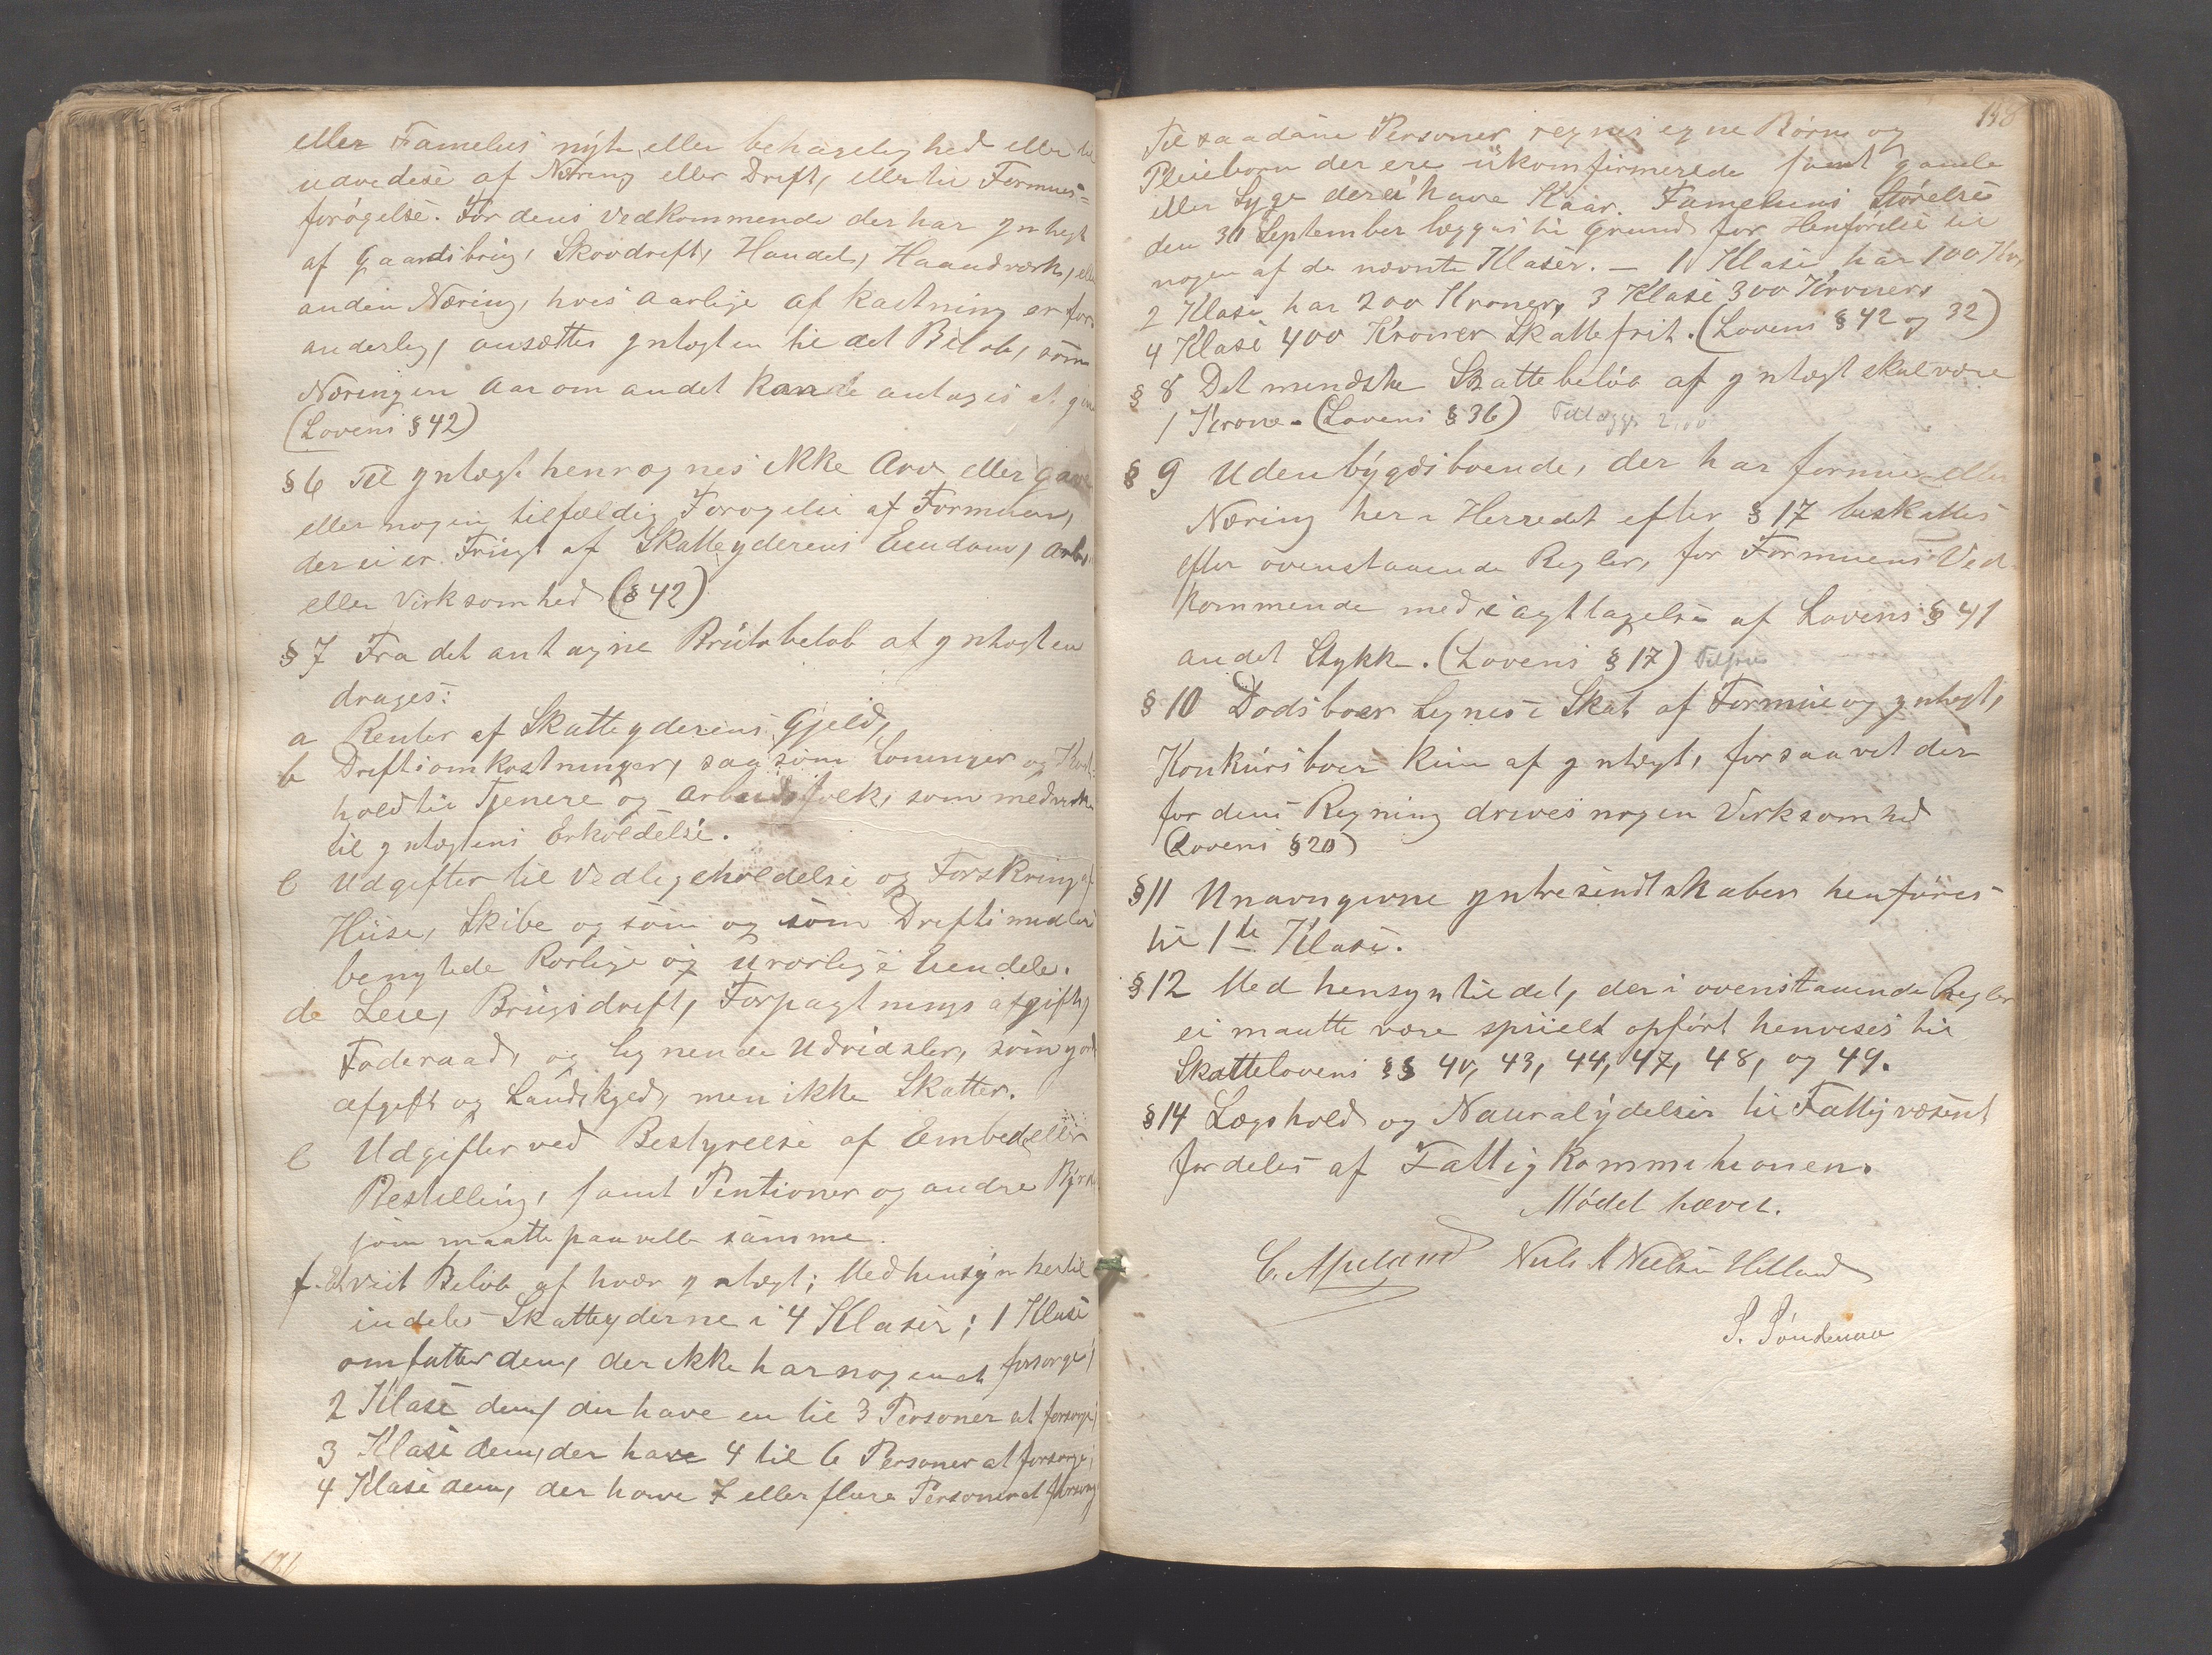 eller Famelies nýte, eller behagelighed eller til
udvidese af Næring eller Drift, eller til Formues=
forøgelse. For deres Vedkommende der har yntegt
af Gaardsbrug, Skovdreft, Handel, Haandværk, eller
anden Næring, hvis aarlige afkastning er for
anderlig, ansættes yntægten til det Beløb, som
Næringen Aar om andet kande antages at give
(Lovens § 42)
§ 6 Til yntægt henregnes ikke Arv eller Gave
eller nogen tilfældig Forøgelse af Formuen,
der ei er Frugt af Skatteyderens Eendom, Arbei
eller Virksomhed (§ 42)
§ 7 Fra det antagne Brutobeløb af yntegten
drages:
a Renter af Skatteyderens Gjeld,
b Driftsomkostninger, saasom Lønninger og Kost=
hold til Tjenere og Arbeidsfolk, som medvirke
til yntægtens Erholdelse.
c Udgifter til Vedligeholdelse og Forsikring af
Huse, Skibe og som og som Driftsmidler
benytede Rørlige og Urørlige Eendele.
d Leie, Brugsdrift, Forpagtningsafgift,
Føderaad, og lignende Udredsler, som Jord
afgift og Landskyld, men ikke Skatter.
e Udgifter ved Bestyrelse af Embed eller
Bestilling, samt Pentioner og andre Byrd
som maatte paavelle samme.
f. Et vist Beløb af hver yntægt; Med hensyn hertil
indeles Skatteyderne i 4 Klaser; 1 Klase
omfatter dem, der ikke har nogen at forsørge,
2 Klase dem, der have en til 3 Personer at forsørge,
3 Klase dem, der have 4 til 6 Personer at forsørge,
4 Klase dem, der have 7 eller flere Personer at forsørge
171
148
Til saadane Personer regnes egne Børn og
Pleiebørn der ere ukomfirmerede samt gamle
eller Syge der ei have Kaar. Famelsens Størelse
den 30 September lægges til Grund for Henførelse til
nogen af de nævnte Klaser. — 1 Klase har 100 Kr
2 Klase har 200 Kroner, 3 Klase 300 Kroner,
4 Klase 400 Kroner Skattefrit. (Lovens § 42 og 32)
§ 8 Det mendste Skattebeløb af yntægt skal være
1 Krone. (Lovens § 36) Tillægges 2,00
§ 9 Udenbýgdsboende, der har formue eller
Næring her i Herredet efter § 17 beskattes
efter ovenstaaende Regler, for Formuens Ved
kommende med iagttagelse af Lovens § 41
andet Stykke. (Lovens § 17)
§ 10 Dødsboer lignes i Skat af Formue og yntægt,
Konkursboer kun af yntægt, forsaavit der
for deres Regning drives nogen Virksomhed
(Lovens § 20)
§ 11 Unavngivne yntresendtskaber henføres
til 1ste Klase.
§ 12 Med hensyn til det, der i ovenstaaende Regler
ei maatte være spiselt opført henveses til
Skattelovens §§ 40, 43, 44, 47, 48, og 49.
§ 14 Lægshold og Nauralýdelser til Fattigvæsent
fordeles af Fattigkommitionen.
Mødet hævet.
Niels A Nielsen Helland